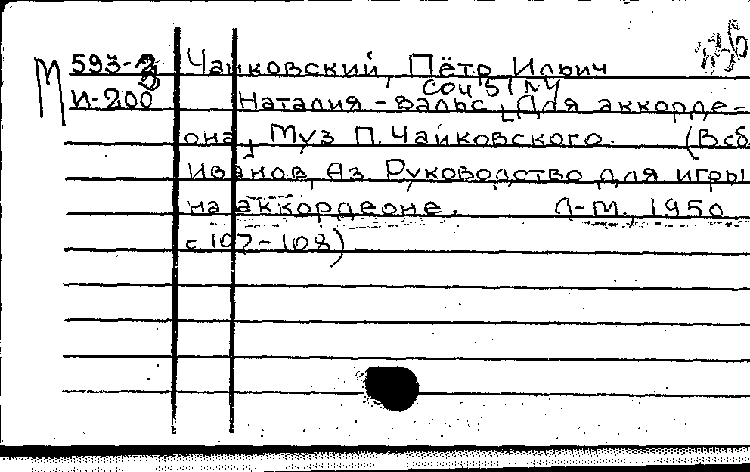 М 593-3 Чайковский, Пётр Ильич
И-200 соч 51 №4
Наталия-вальс, Для аккорде-
она, Муз П. Чайковского. (В сб
Иванов, Аз Руководство для игры
на аккордеоне. Л-М., 1950
с 107-108)